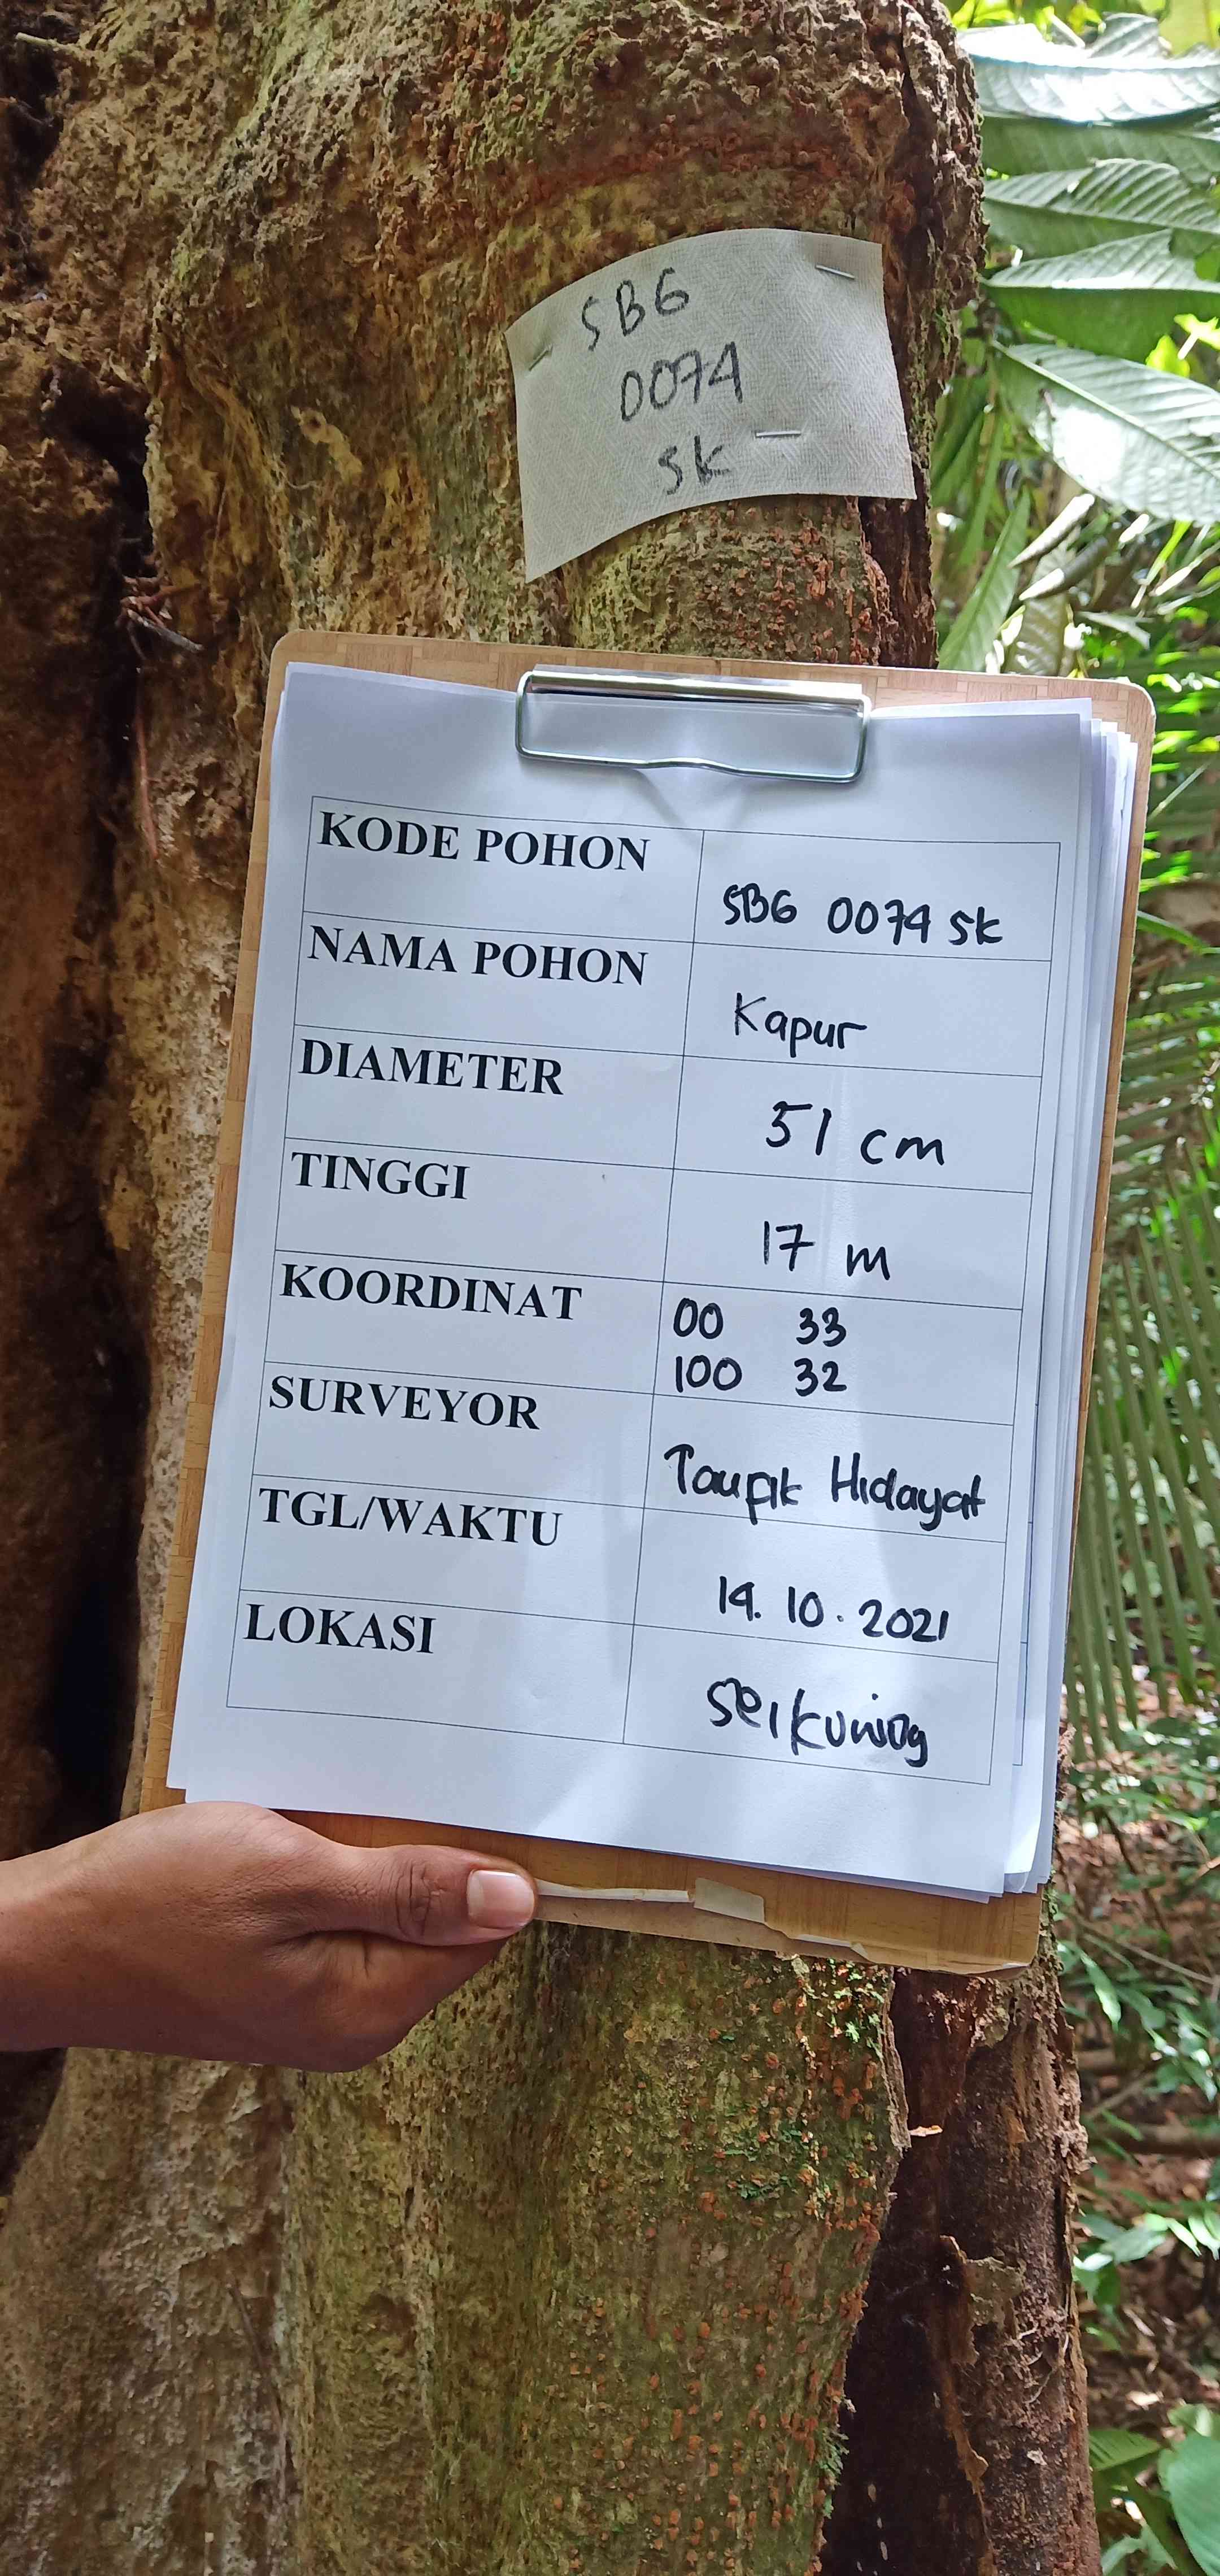 SBG
0074
SK
KODE POHON
SBG 0074 SK
NAMA POHON
Kapur
DIAMETER
51 cm
TINGGI
17 m
KOORDINAT
00 33
100 32
SURVEYOR
Taufik Hidayat
TGL/WAKTU
14. 10. 2021
LOKASI
Seikuning